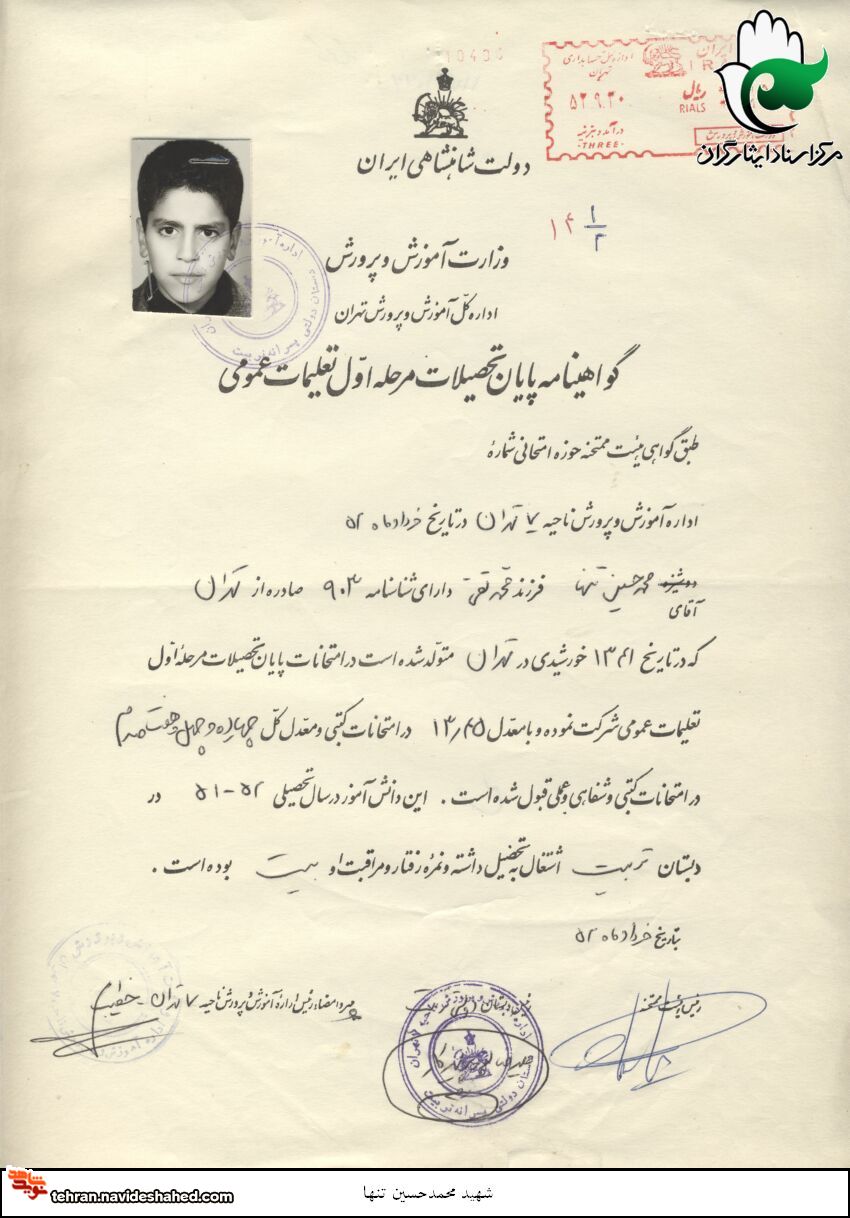 اداره کل حسابداری
تهران
ایران
ریال
RIALS
۵۲.۹.۳۰
درآمد و هزینه
-THREE-
مرکز اسناد ایثارگران
دولت شاهنشاهی ایران
۱۴ ۱/۲
وزارت آموزش و پرورش
اداره کل آموزش و پرورش تهران
گواهینامه پایان تحصیلات مرحله اوّل تعلیمات عمومی
طبق گواهی هیئت ممتحنه حوزه امتحانی شمارهٔ
اداره آموزش و پرورش ناحیه ۷ تهران در تاریخ خرداد ماه ۵۲
دوشیزه محمد حسین تنها فرزند محمد تقی دارای شناسنامه ۹۰۳ صادره از تهران
آقای
که در تاریخ ۱۳۴۱ خورشیدی در تهران متولّد شده است در امتحانات پایان تحصیلات مرحلهٔ اوّل
تعلیمات عمومی شرکت نموده و با معدل ۱۳٫۴۵ در امتحانات کتبی و معدل کلّ چهارده و چهل و هفت صدم
در امتحانات کتبی و شفاهی و عملی قبول شده است . این دانش آموز در سال تحصیلی ۵۲-۵۱ در
دبستان تربیت اشتغال به تحصیل داشته و نمره رفتار و مراقبت او بیست بوده است .
بتاریخ خرداد ماه ۵۲
رئیس هیئت ممتحنه
مهر و امضاء رئیس اداره آموزش و پرورش ناحیه ۷ تهران - خطیب
دبستان دولتی پسرانه تربیت
شهید محمدحسین تنها
نوید شاهد
tehran.navideshahed.com